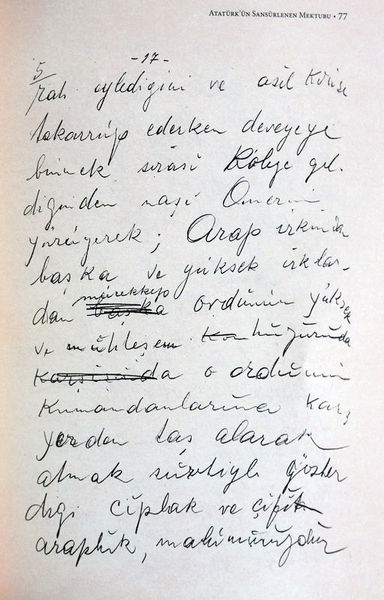 ATATÜRK'ÜN SANSÜRLENEN MEKTUBU • 77
5
-17-
rah eylediğini ve asil Kırise
takarrüp ederken deveyeye
binmek sırası Köleye gel-
diğinden naşi Ömerin
yürüyerek; Arap ırkından
başka ve yüksek ırklar-
dan mürekkep ordünün yüksek
ve mühteşem huzurunda
o ordünün
Kumandanlarına karşı
yerden taş alarak
atmak süretiyle göster
diği çıplak ve çifit
araplık, malûmünüzdür